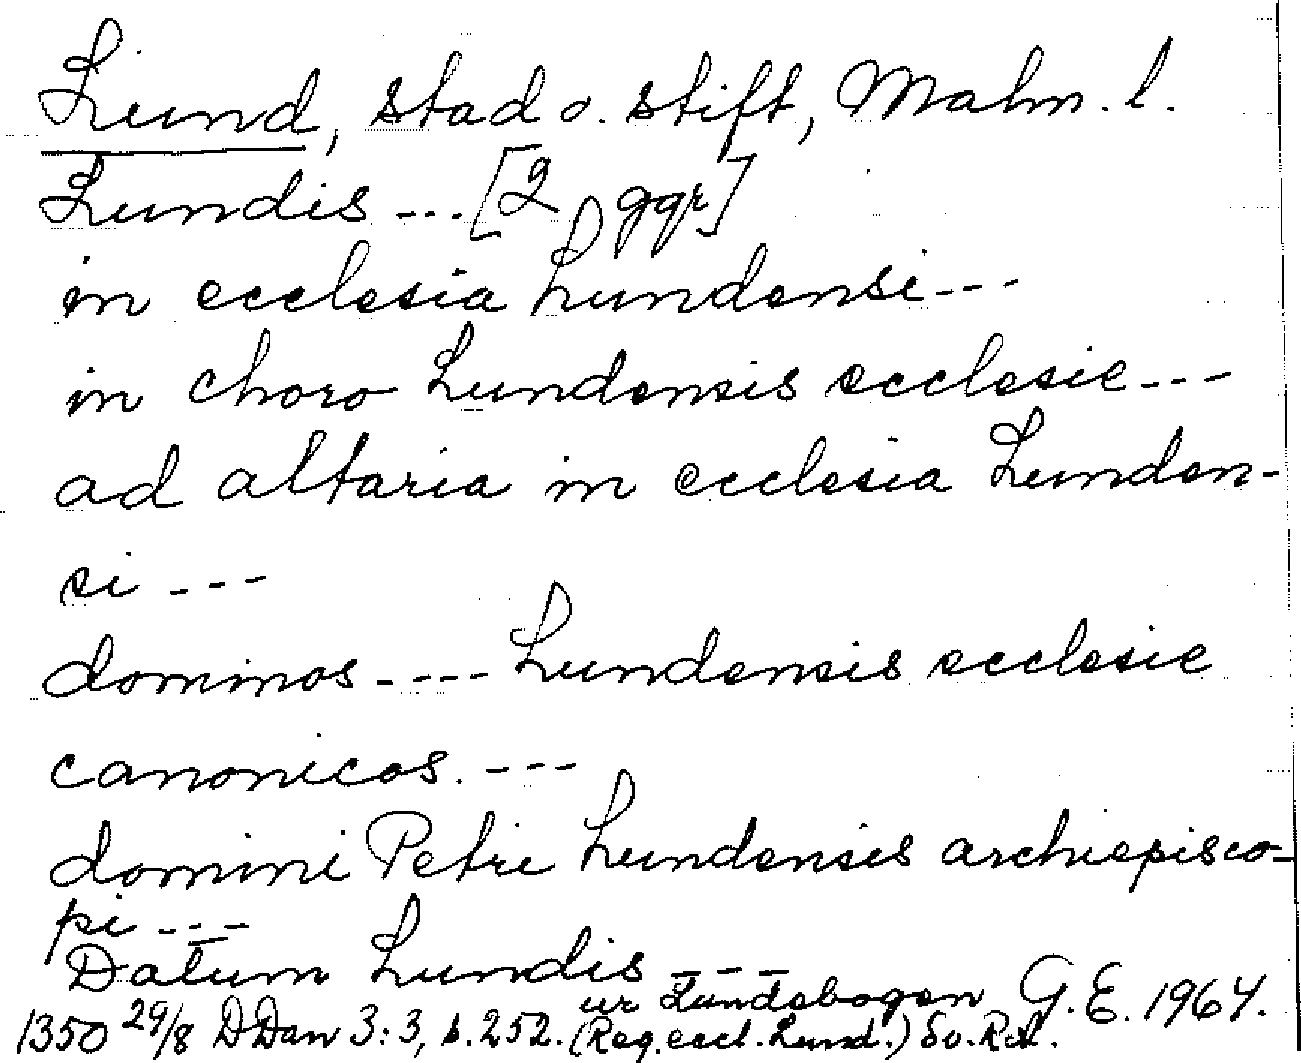 Lund, stad o. stift, Malm. l.
Lundis ... [2 ggr]
in ecclesia Lundensi---
in choro Lundensis ecclesie---
ad altaria in ecclesia Lunden-
si ---
dominos ---- Lundensis ecclesie
canonicos. ---
domini Petri Lundensis archiepisco-
pi ---
Datum Lundis ---
ur Lundebogen G.E. 1964.
1350 29/8 DDan 3:3, s. 252. (Reg. eccl. Lund.) Sv. RA.